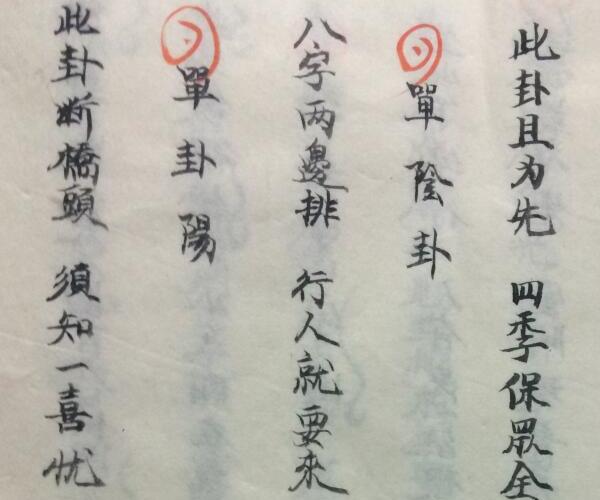 此卦且为先 四季保眾全
單陰卦
八字两邊排 行人就要來
單卦陽
此卦断橋頭 須知一喜忧